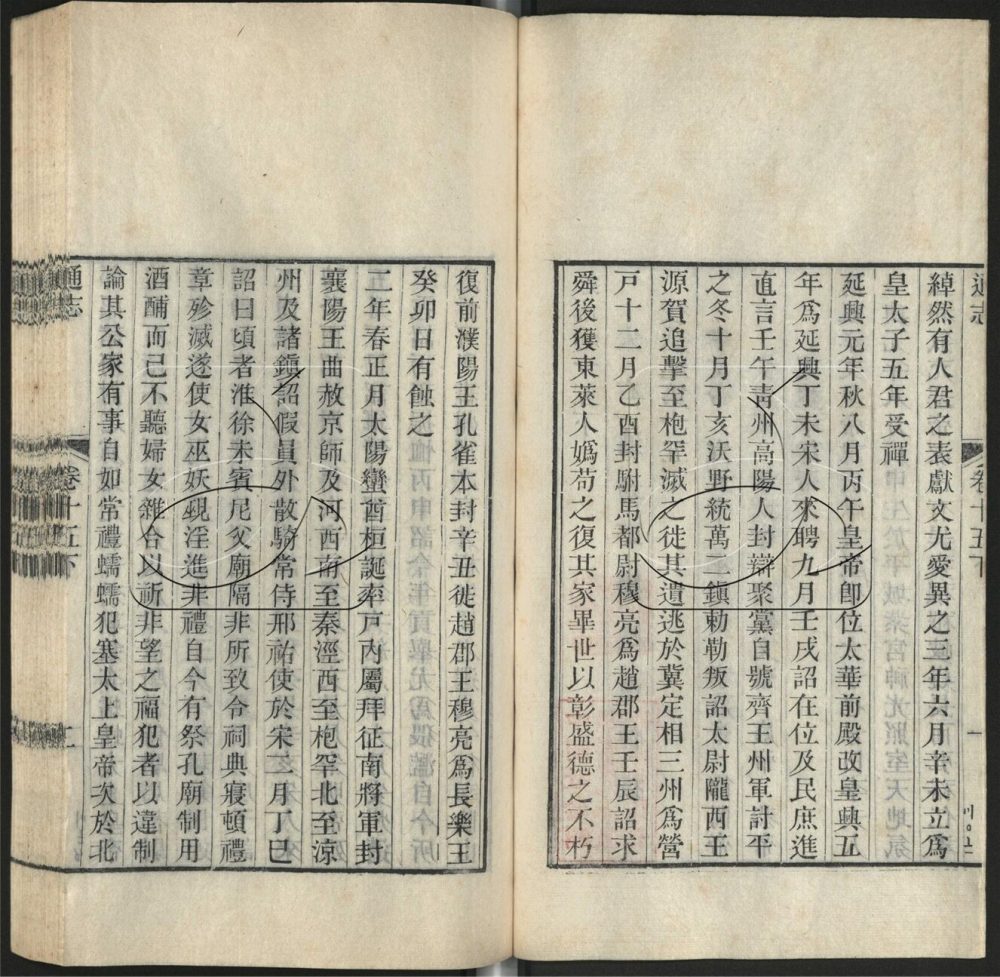 通志
卷十五下
一
綽然有人君之表獻文尤愛異之三年六月辛未立爲
皇太子五年受禪
延興元年秋八月丙午皇帝卽位太華前殿改皇興五
年爲延興丁未宋人來聘九月壬戌詔在位及民庶進
直言壬午靑州高陽人封辯聚黨自號齊王州軍討平
之冬十月丁亥沃野統萬二鎭勅勒叛詔太尉隴西王
源賀追擊至枹罕滅之徙其遺逃於冀定相三州爲營
戸十二月乙酉封駙馬都尉穆亮爲趙郡王壬辰詔求
舜後獲東萊人嬀苟之復其家畢世以彰盛德之不朽
復前濮陽王孔雀本封辛丑徙趙郡王穆亮爲長樂王
癸卯日有蝕之
二年春正月太陽蠻酋桓誕率戸內屬拜征南將軍封
襄陽王曲赦京師及河西南至秦涇西至枹罕北至涼
州及諸鎭詔假員外散騎常侍邢祐使於宋二月丁巳
詔曰頃者淮徐未賓尼父廟隔非所致令祠典寢頓禮
章殄滅遂使女巫妖覡淫進非禮自今有祭孔廟制用
酒酺而已不聽婦女雜合以祈非望之福犯者以違制
論其公家有事自如常禮蠕蠕犯塞太上皇帝次於北
通志
卷十五下